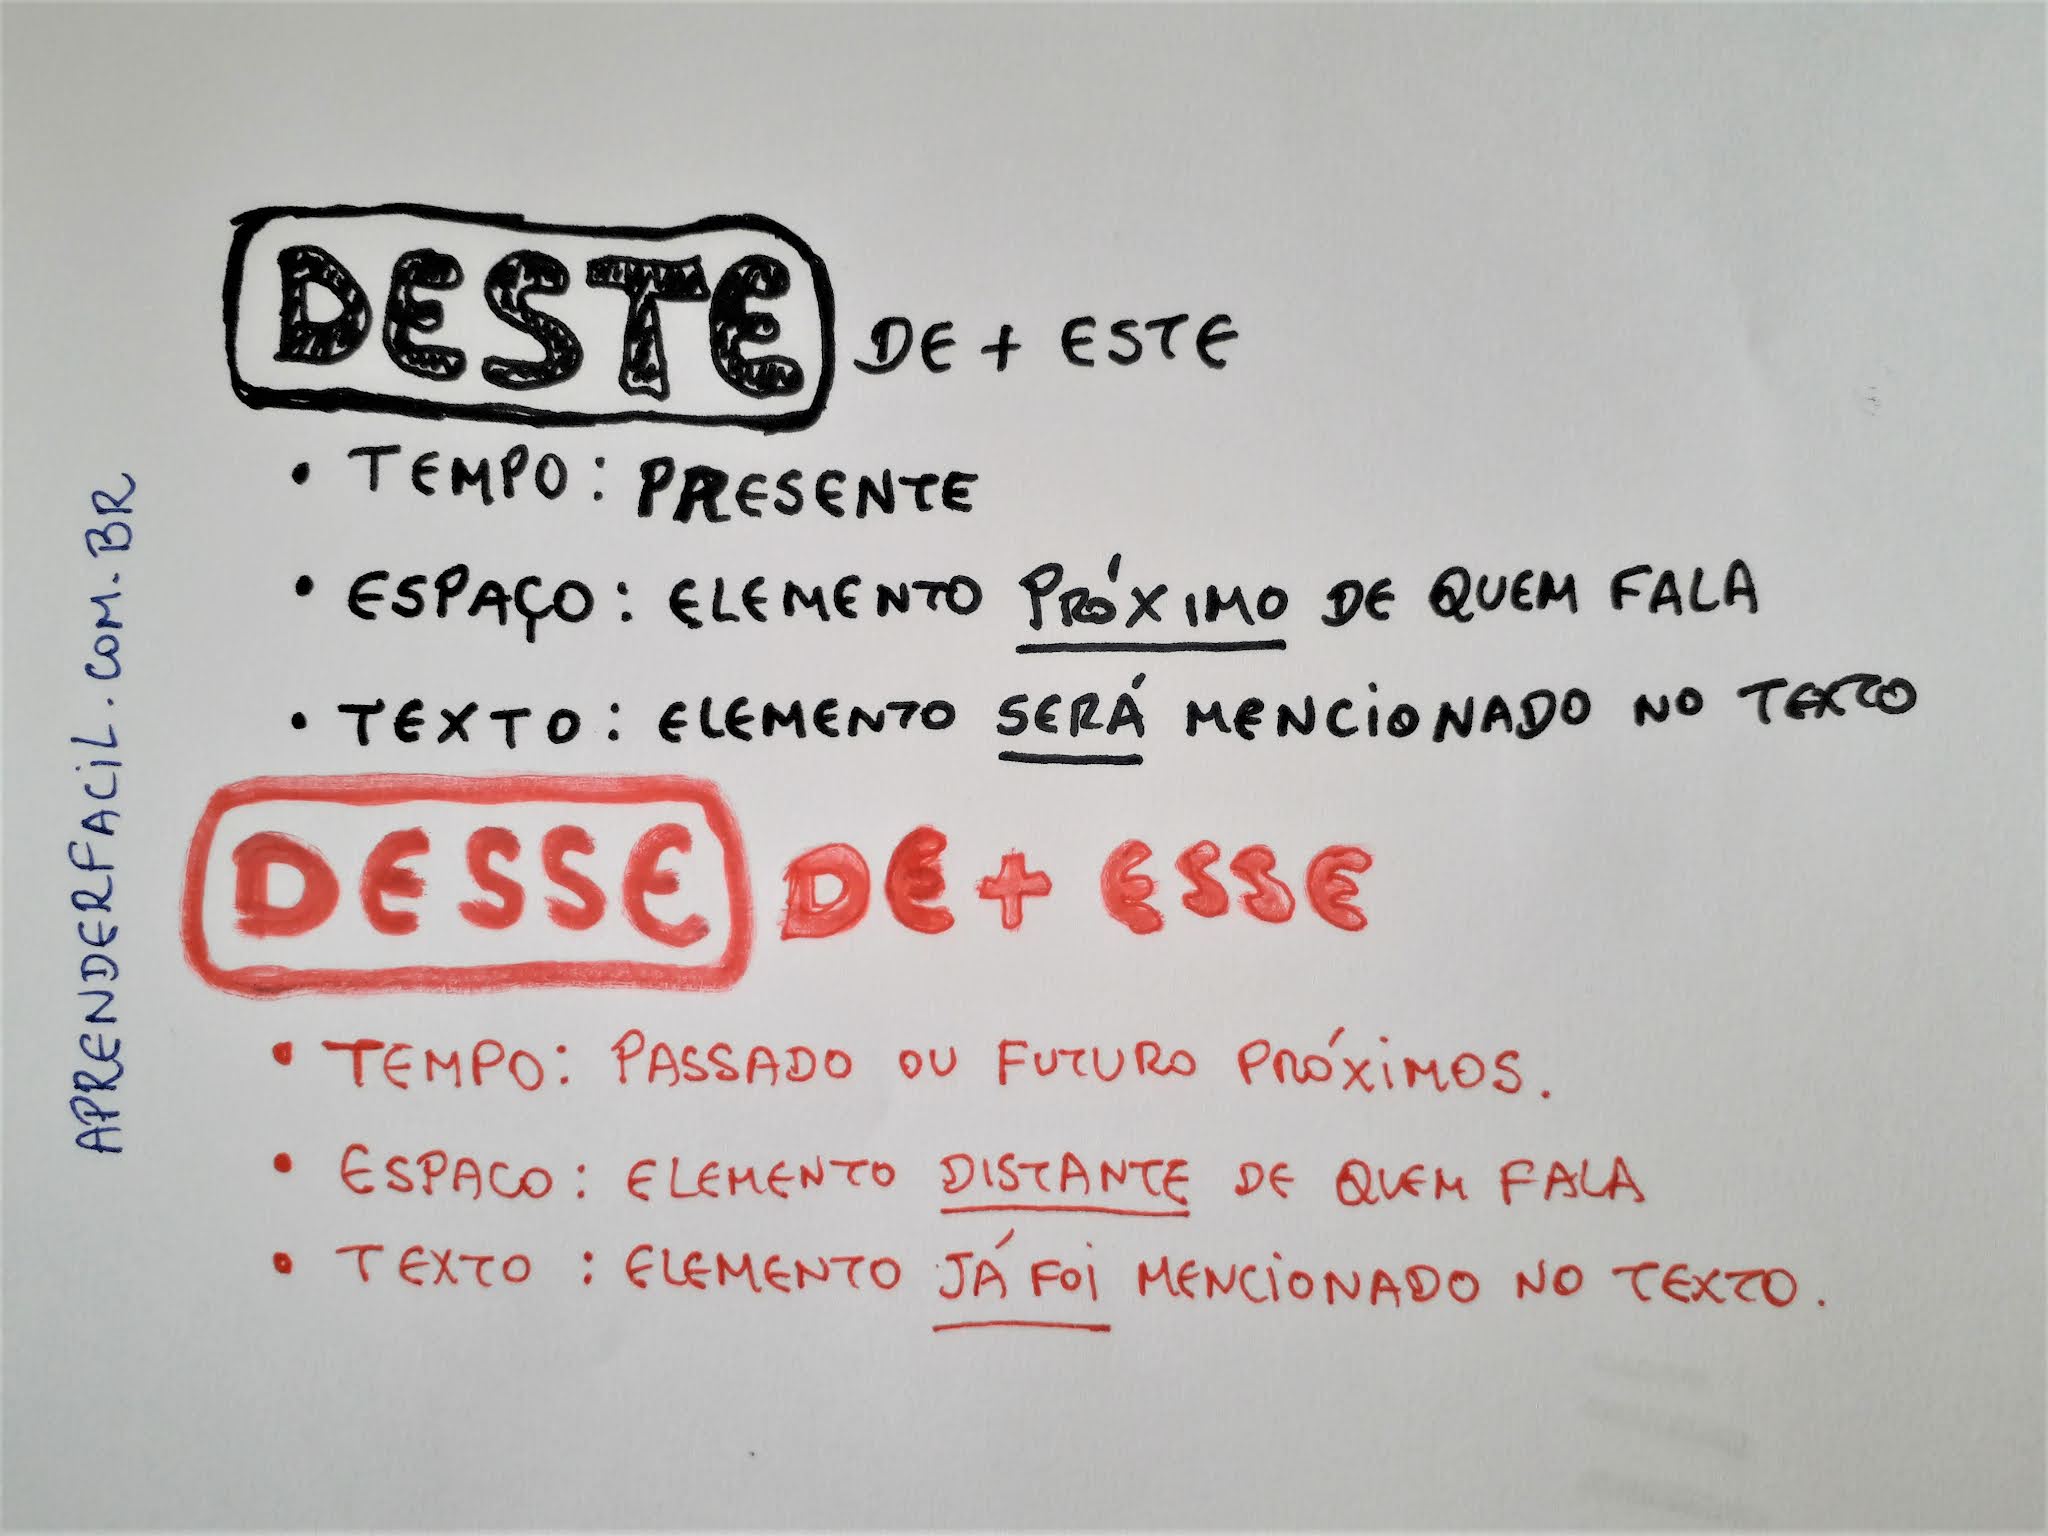 DESTE DE + ESTE
• TEMPO: PRESENTE
• ESPAÇO: ELEMENTO PRÓXIMO DE QUEM FALA
• TEXTO: ELEMENTO SERÁ MENCIONADO NO TEXTO
DESSE DE + ESSE
• TEMPO: PASSADO OU FUTURO PRÓXIMOS.
• ESPACO: ELEMENTO DISTANTE DE QUEM FALA
• TEXTO: ELEMENTO JÁ FOI MENCIONADO NO TEXTO.
APRENDERFACIL.COM.BR